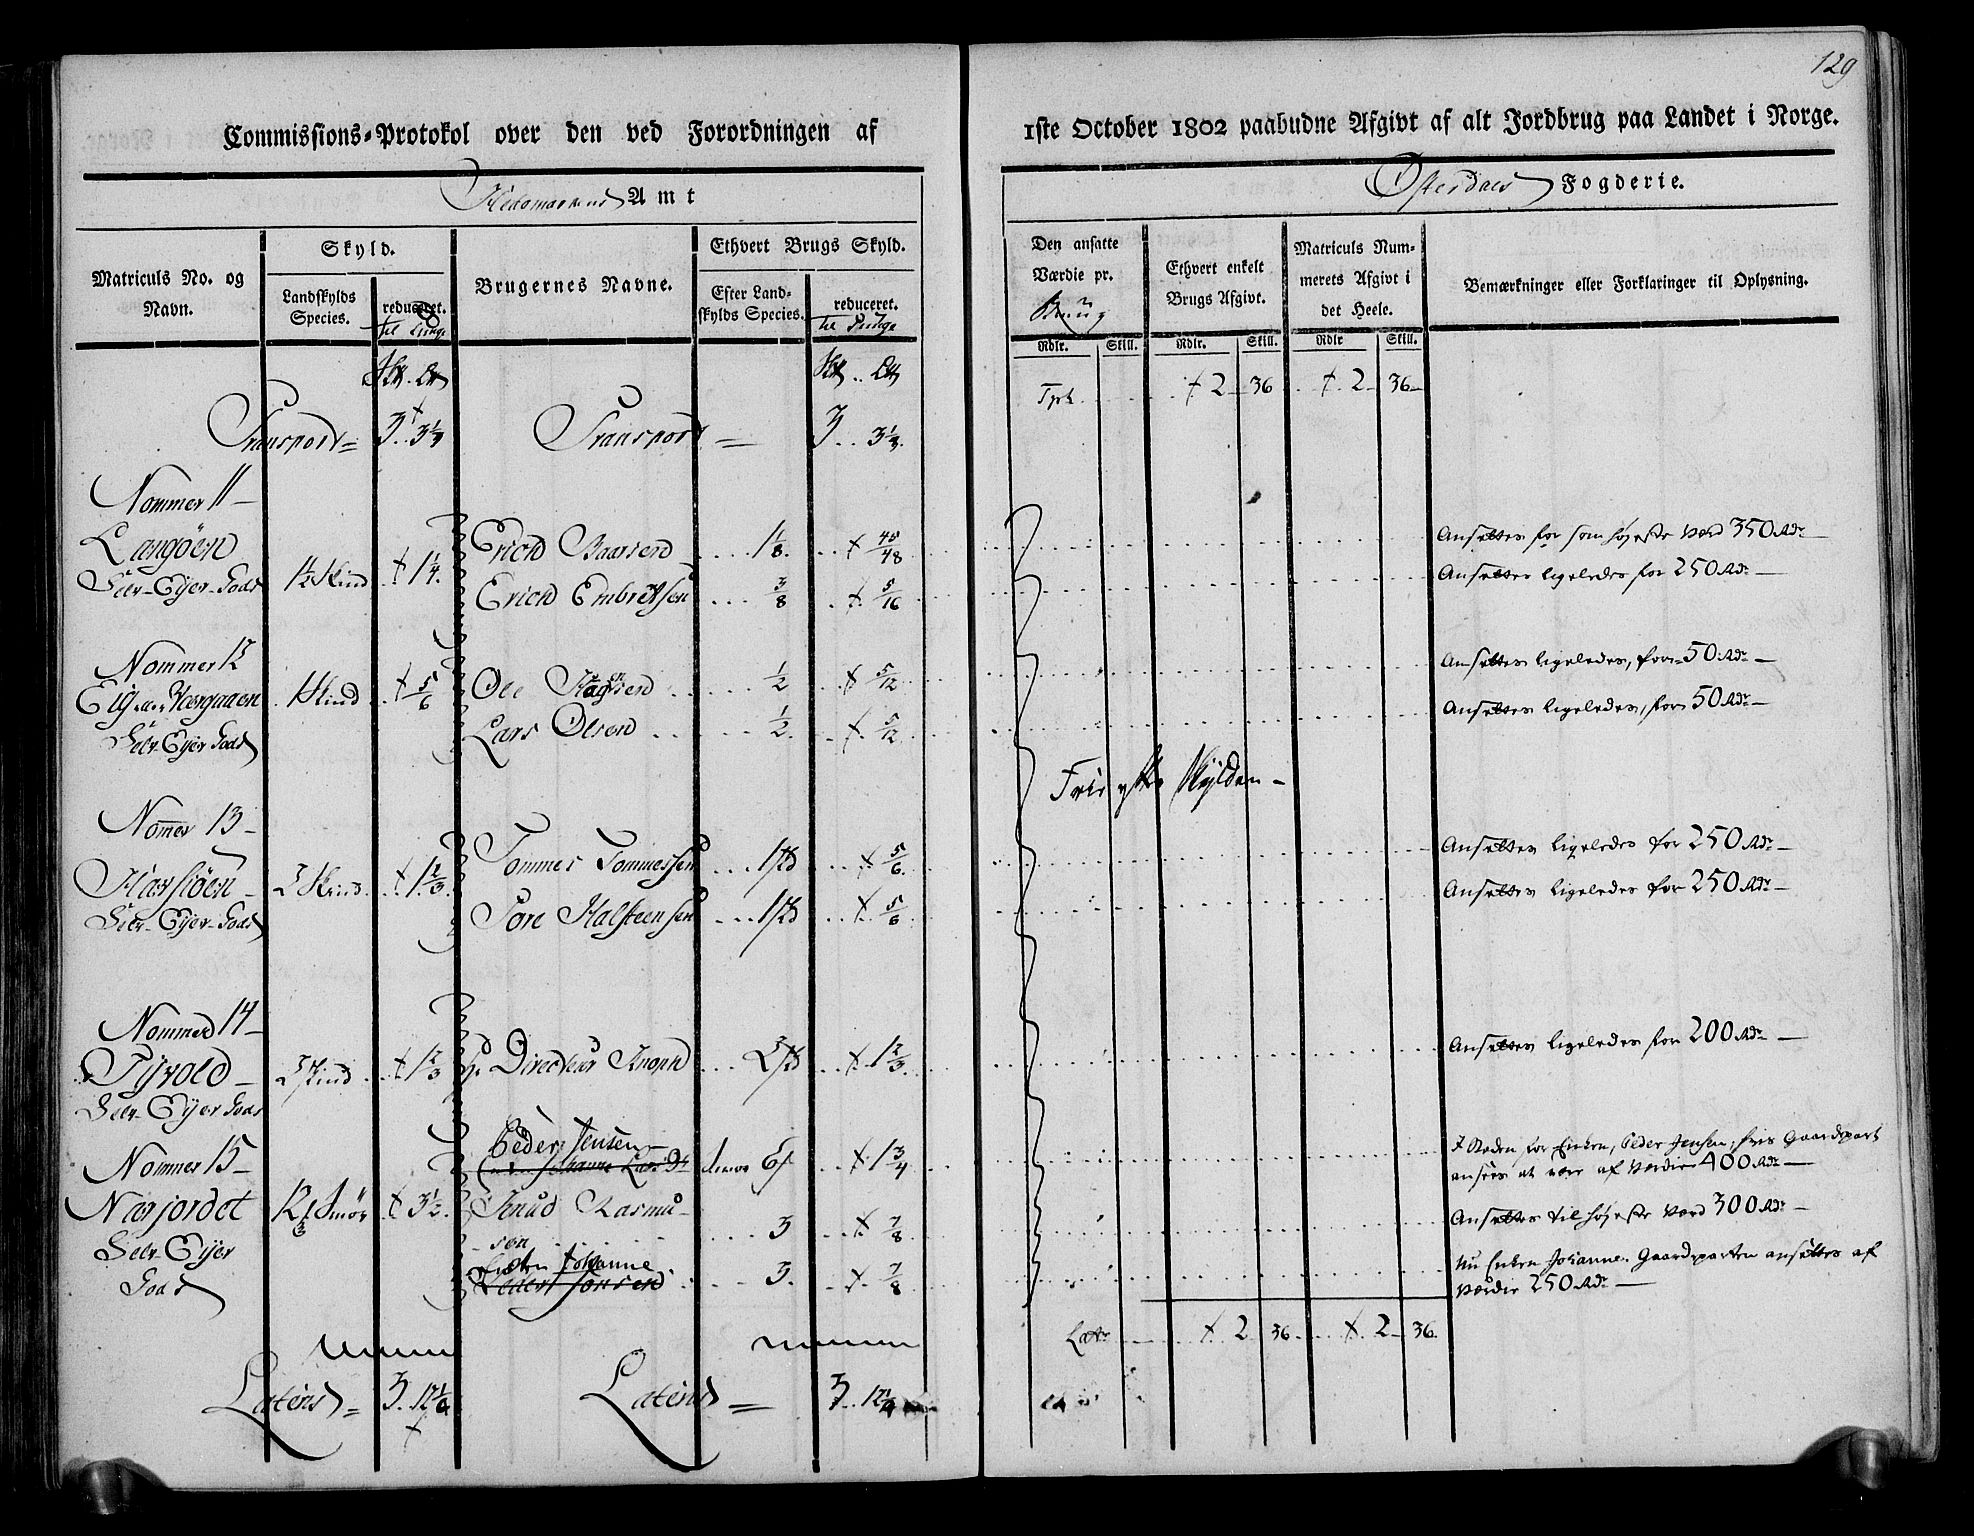 129
Commissions-Protokol over den ved Forordningen af
1ste October 1802 paabudne Afgivt af alt Jordbrug paa Landet i Norge.
Hedemarkens Amt
Østerdals Fogderie.
Matriculs No. og Navn.
Skyld.
Landskylds Species.
reduceret.
til Tunge
Brugernes Navne.
Ethvert Brugs Skyld.
Efter Landskylds Species.
reduceret.
til Tunge
Den ansatte Værdie pr.
Brug
Ethvert enkelt Brugs Afgivt.
Matriculs Nummerets Afgivt i det Heele.
Bemærkninger eller Forklaringer til Oplysning.
Rdlr. Skill. Rdlr. Skill. Rdlr Skill.
Transport = 3 . 3 1/3 Transport = 3 . . 3 1/3. Tpt 2 36 2 36
Nommer 11
Langöen
Selv-Eyer-Gods
1 1/2 Skind 1 1/4.
Erich Baarsen 1 1/8. 45/48 Ansættes for som høyeste værd 350 Rdr
Erich Embretsen 3/8 5/16 Ansættes ligeledes for 250 Rdr
Nommer 12
Selv-Eyer Gods
1 Skind 5/6
Ole 1/2 5/12 Ansættes ligeledes, for 50 Rdr
Lars Olsen 1/2. 5/12 Ansættes ligeledes, for 50 Rdr
Skylden
Nomer 13
Harsiöen
Selv-Eyer-Gods
2 Skind. 1 2/3.
Tommes Tommessen 1 5/6. Ansættes ligeledes for 250 Rdr
Tore Halsteensen 1 5/6 Ansættes ligeledes for 250 Rdr
Nommer 14
Tyvold
Selv-Eyer Gods
2 Skind 1 2/3
Hr. Directeur Knoph 2 1 2/3. Ansættes ligeledes for 200 Rdr
Nommer 15
Narjordet
Selv-Eyer
Gods
Smör 3 1/2.
Peder Jensen
6 1 3/4
I Steden for Enken, Peder Jensen, hvis Gaardpart
ansees at være af Værdie 400 Rdr
Knud Rasmusen 3 7/8 Ansættes til høyeste Værd 300 Rdr
Enken Johanne
Peder Jonsen 3. 7/8
Nu Enken Johanne. Gaardparten ansættes af
Værdie 250 Rdr
Lat 2 36 2 36
Latens = 3. 12 1/6 Latens = 3